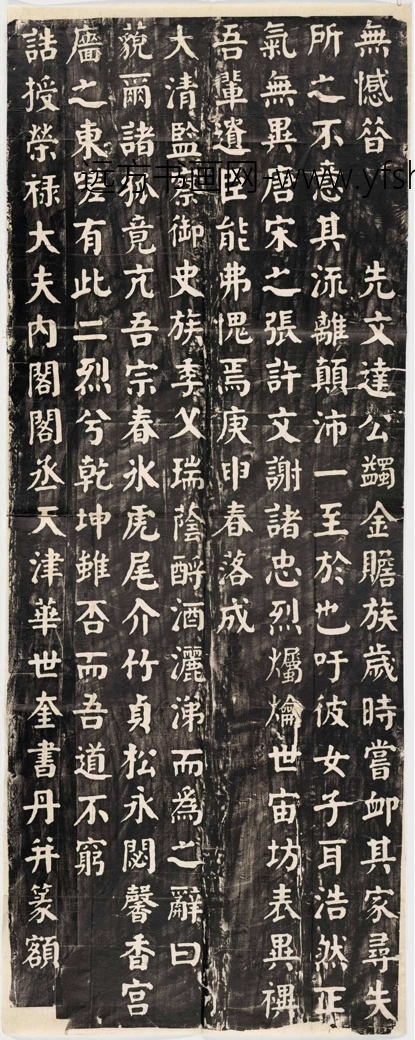 無憾昔 先文達公蠲金贍族歲時嘗卹其家尋失
所之不意其流離顛沛一至於此吁彼女子耳浩然正
氣無異唐宋之張許文謝諸忠烈爥爚世宙坊表異禩
吾輩遺臣能弗愧焉庚申春落成
大清監察御史族季父瑞蔭酹酒灑涕而為之辭曰
藐爾諸孤竟亢吾宗春冰虎尾介竹貞松永閟馨香宮
牆之東嗟有此二烈兮乾坤雖否而吾道不窮
誥授榮祿大夫內閣閣丞天津華世奎書丹并篆額
远方书画网-www.yfsh